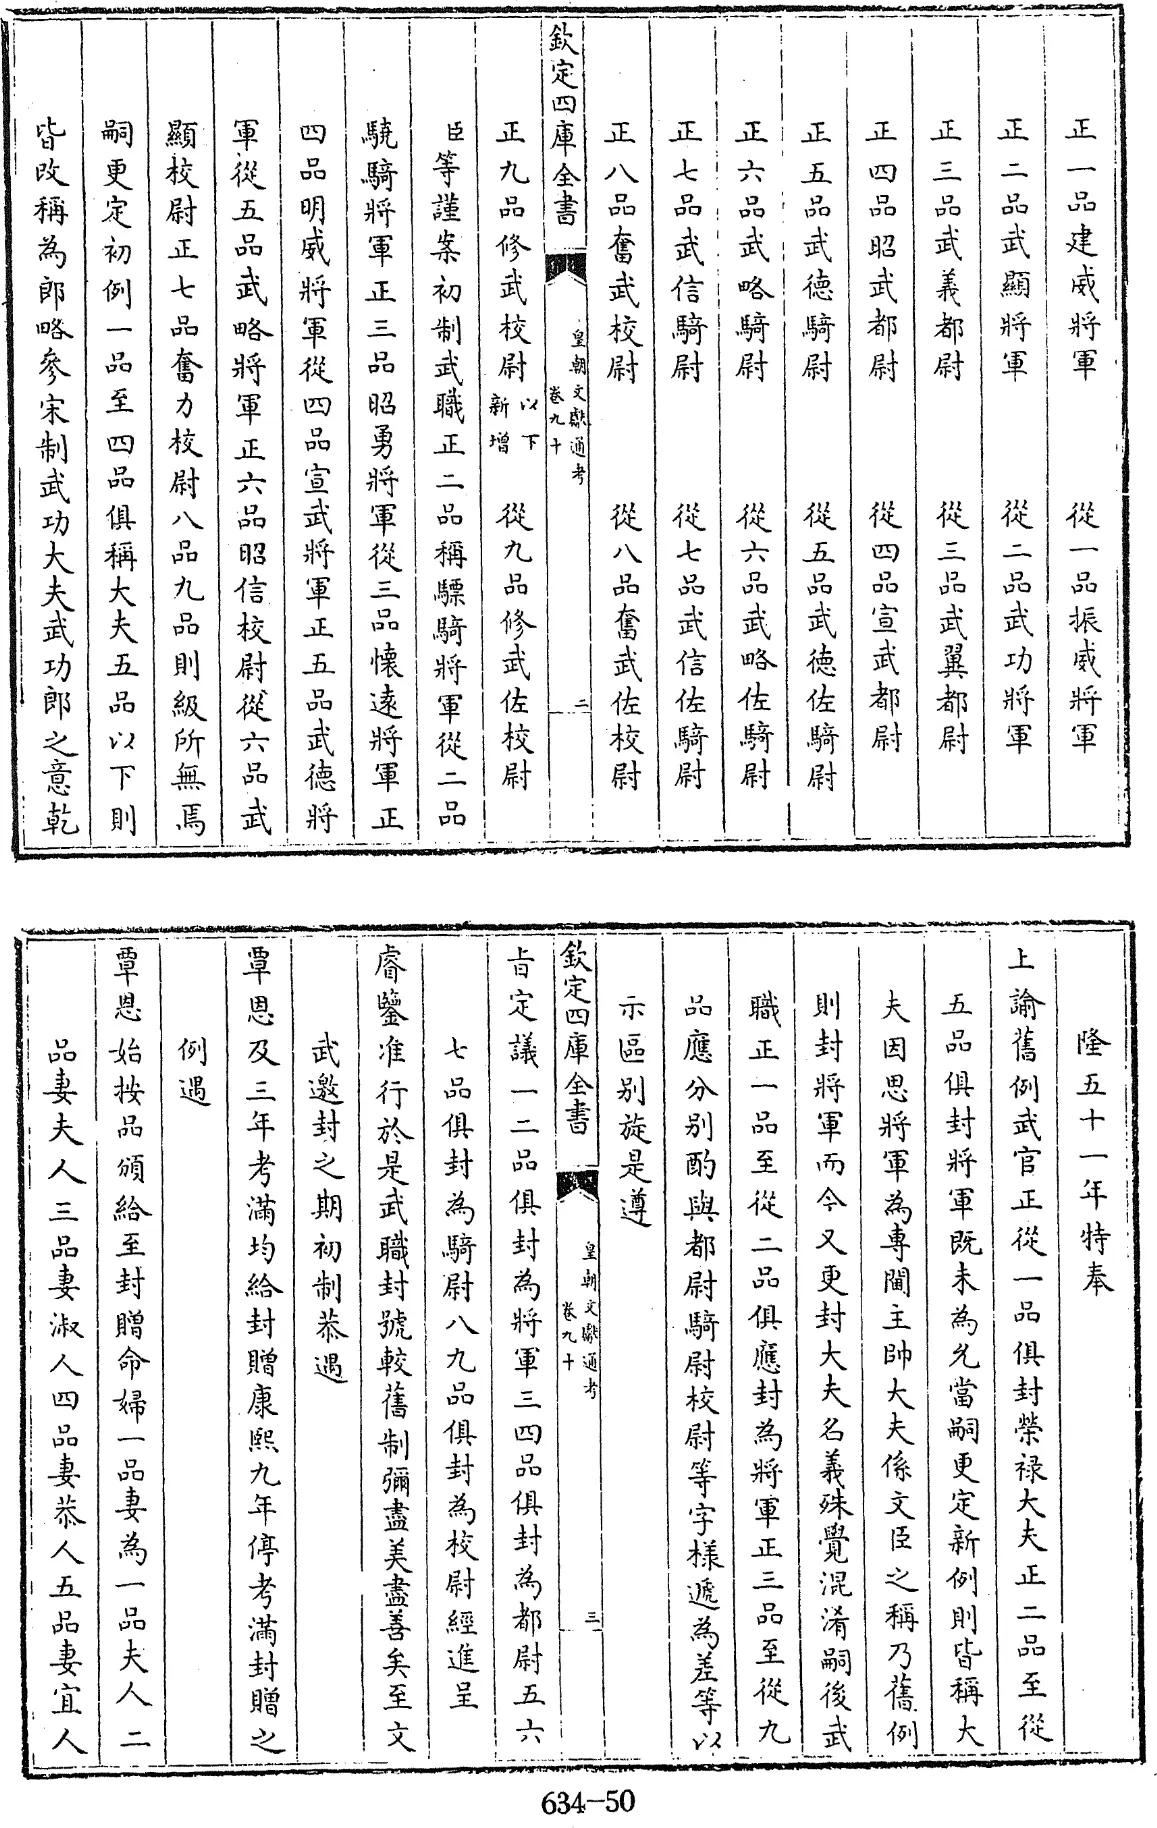 正一品建威將軍 從一品振威將軍
正二品武顯將軍 從二品武功將軍
正三品武義都尉 從三品武翼都尉
正四品昭武都尉 從四品宣武都尉
正五品武德騎尉 從五品武德佐騎尉
正六品武略騎尉 從六品武略佐騎尉
正七品武信騎尉 從七品武信佐騎尉
正八品奮武校尉 從八品奮武佐校尉
欽定四庫全書 皇朝文獻通考 卷九十 二
正九品修武校尉 以下新增 從九品修武佐校尉
臣等謹案初制武職正二品稱驃騎將軍從二品
驍騎將軍正三品昭勇將軍從三品懷遠將軍正
四品明威將軍從四品宣武將軍正五品武德將
軍從五品武略將軍正六品昭信校尉從六品武
顯校尉正七品奮力校尉八品九品則級所無焉
嗣更定初例一品至四品俱稱大夫五品以下則
皆改稱為郎略參宋制武功大夫武功郎之意乾
隆五十一年特奉
上諭舊例武官正從一品俱封榮祿大夫正二品至從
五品俱封將軍既未為允當嗣更定新例則皆稱大
夫因思將軍為專閫主帥大夫係文臣之稱乃舊例
則封將軍而今又更封大夫名義殊覺混淆嗣後武
職正一品至從二品俱應封為將軍正三品至從九
品應分別酌與都尉騎尉校尉等字樣遞為差等以
示區別旋是遵
欽定四庫全書 皇朝文獻通考 卷九十 三
旨定議一二品俱封為將軍三四品俱封為都尉五六
七品俱封為騎尉八九品俱封為校尉經進呈
睿鑒准行於是武職封號較舊制彌盡美盡善矣至文
武邀封之期初制恭遇
覃恩及三年考滿均給封贈康熙九年停考滿封贈之
例遇
覃恩始按品頒給至封贈命婦一品妻為一品夫人二
品妻夫人三品妻淑人四品妻恭人五品妻宜人
634-50